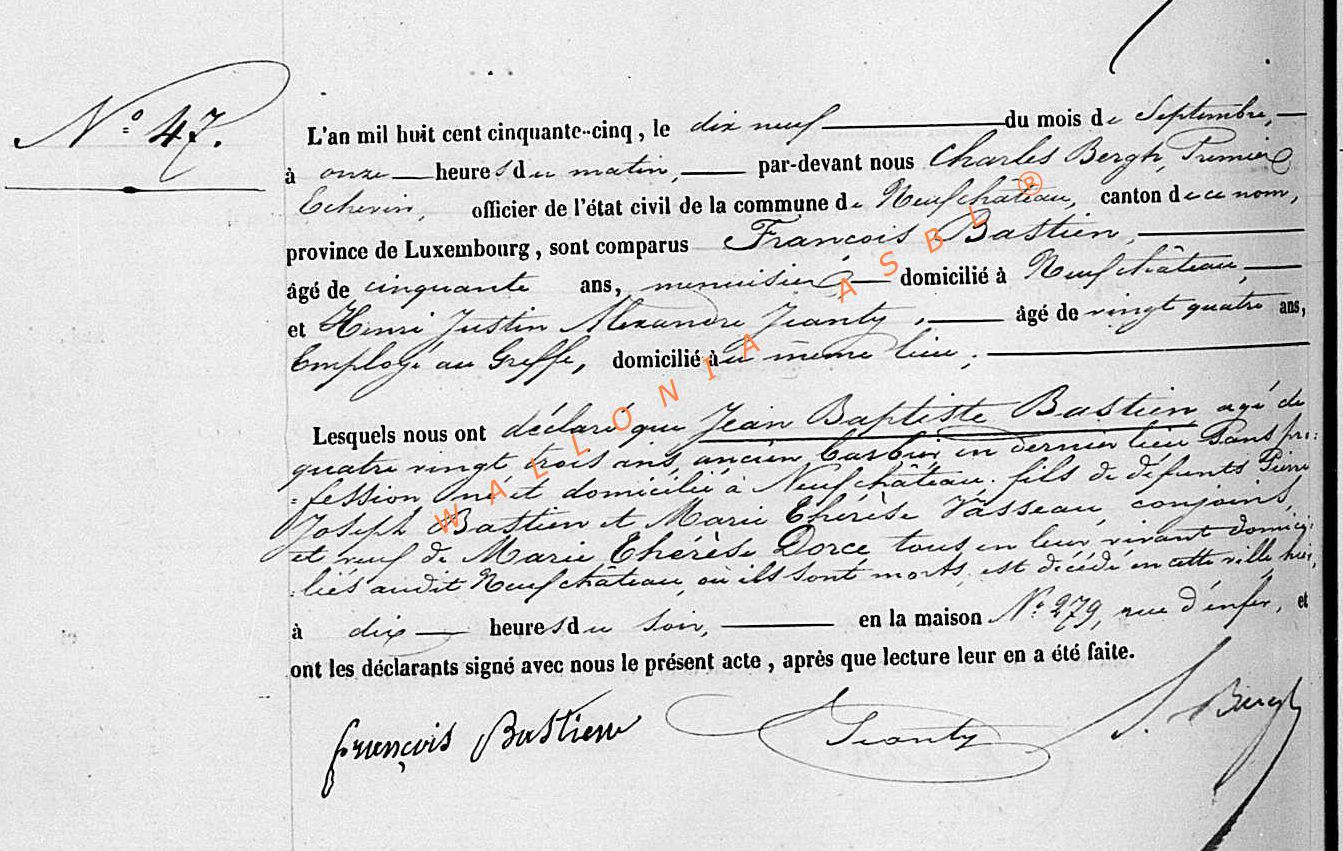 N° 47.
L'an mil huit cent cinquante-cinq, le dix neuf du mois de Septembre,
à onze heures du matin, par-devant nous Charles Bergh, Premier
Echevin, officier de l'état civil de la commune de Neufchâteau, canton de ce nom,
province de Luxembourg, sont comparus François Bastien,
âgé de cinquante ans, menuisier, domicilié à Neufchâteau,
et Henri Justin Alexandre Jeanty, âgé de vingt quatre ans,
Employé au Greffe, domicilié au même lieu,
Lesquels nous ont déclaré que Jean Baptiste Bastien agé de
quatre vingt trois ans, ancien en dernier lieu sans pro-
fession né et domicilié à Neufchâteau. fils de défunts Pierre
Joseph Bastien et Marie Thérèse Vasseau, conjoints,
et veuf de Marie Thérèse Dorce tous en leur vivant domici-
liés audit Neufchâteau, où ils sont morts, est décédé en cette ville, hier,
à dix heures du soir, en la maison N° 279, rue d'enfer, et
ont les déclarants signé avec nous le présent acte, après que lecture leur en a été faite.
françois Bastien Jeanty Bergh
WALLONIA ASBL ®